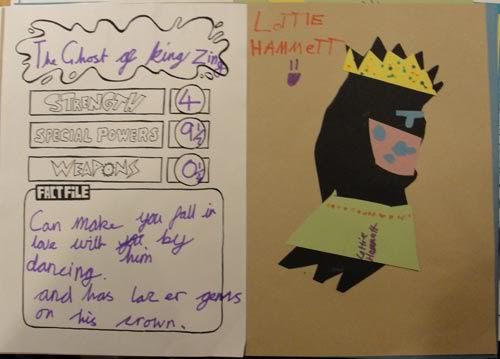 The Ghost of King Zing
STRENGTH 4
SPECIAL POWERS 9½
WEAPONS 0½
FACT FILE
Can make you fall in
love with by
him
dancing.
and has lazer gems
on his crown.
LOTTIE
HAMMETT
Lottie
Hammett